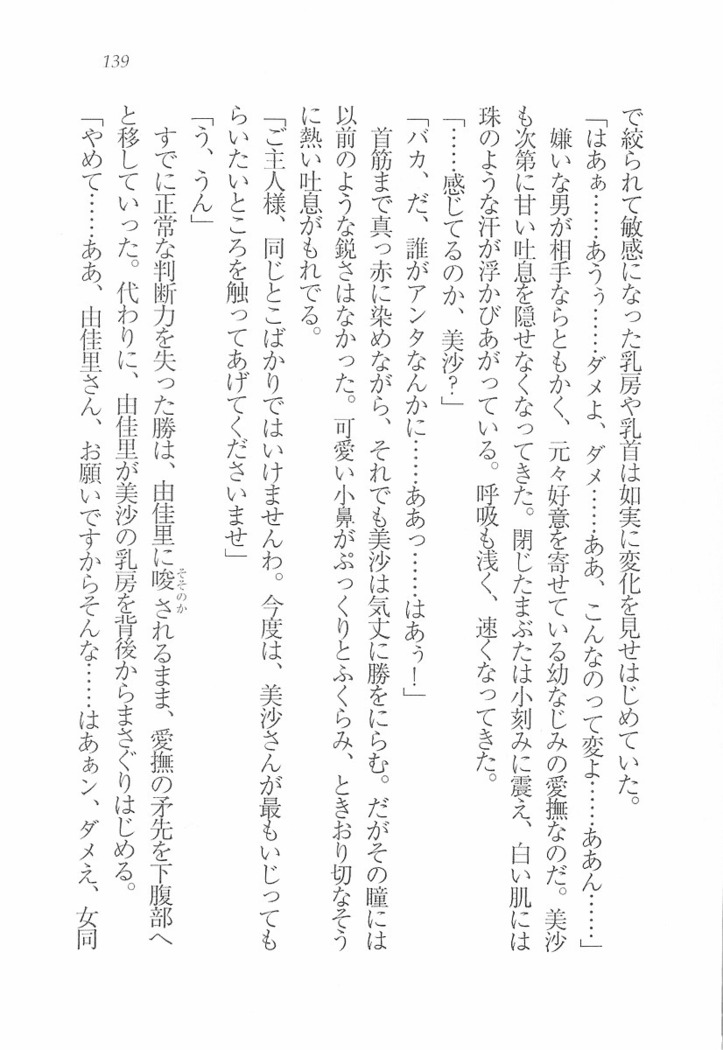 139
で絞られて敏感になった乳房や乳首は如実に変化を見せはじめていた。
「はあぁ……あうぅ……ダメよ、ダメ……ああ、こんなのって変よ……ああん……」
嫌いな男が相手ならともかく、元々好意を寄せている幼なじみの愛撫なのだ。美沙
も次第に甘い吐息を隠せなくなってきた。閉じたまぶたは小刻みに震え、白い肌には
珠のような汗が浮かびあがっている。呼吸も浅く、速くなってきた。
「……感じてるのか、美沙？」
「バカ、だ、誰がアンタなんかに……ああっ……はあぅ！」
首筋まで真っ赤に染めながら、それでも美沙は気丈に勝をにらむ。だがその瞳には
以前のような鋭さはなかった。可愛い小鼻がぷっくりとふくらみ、ときおり切なそう
に熱い吐息がもれでる。
「ご主人様、同じとこばかりではいけませんわ。今度は、美沙さんが最もいじっても
らいたいところを触ってあげてくださいませ」
「う、うん」
すでに正常な判断力を失った勝は、由佳里に唆されるまま、愛撫の矛先を下腹部へ
そそのか
と移していった。代わりに、由佳里が美沙の乳房を背後からまさぐりはじめる。
「やめて……ああ、由佳里さん、お願いですからそんな……はあぁン、ダメえ、女同